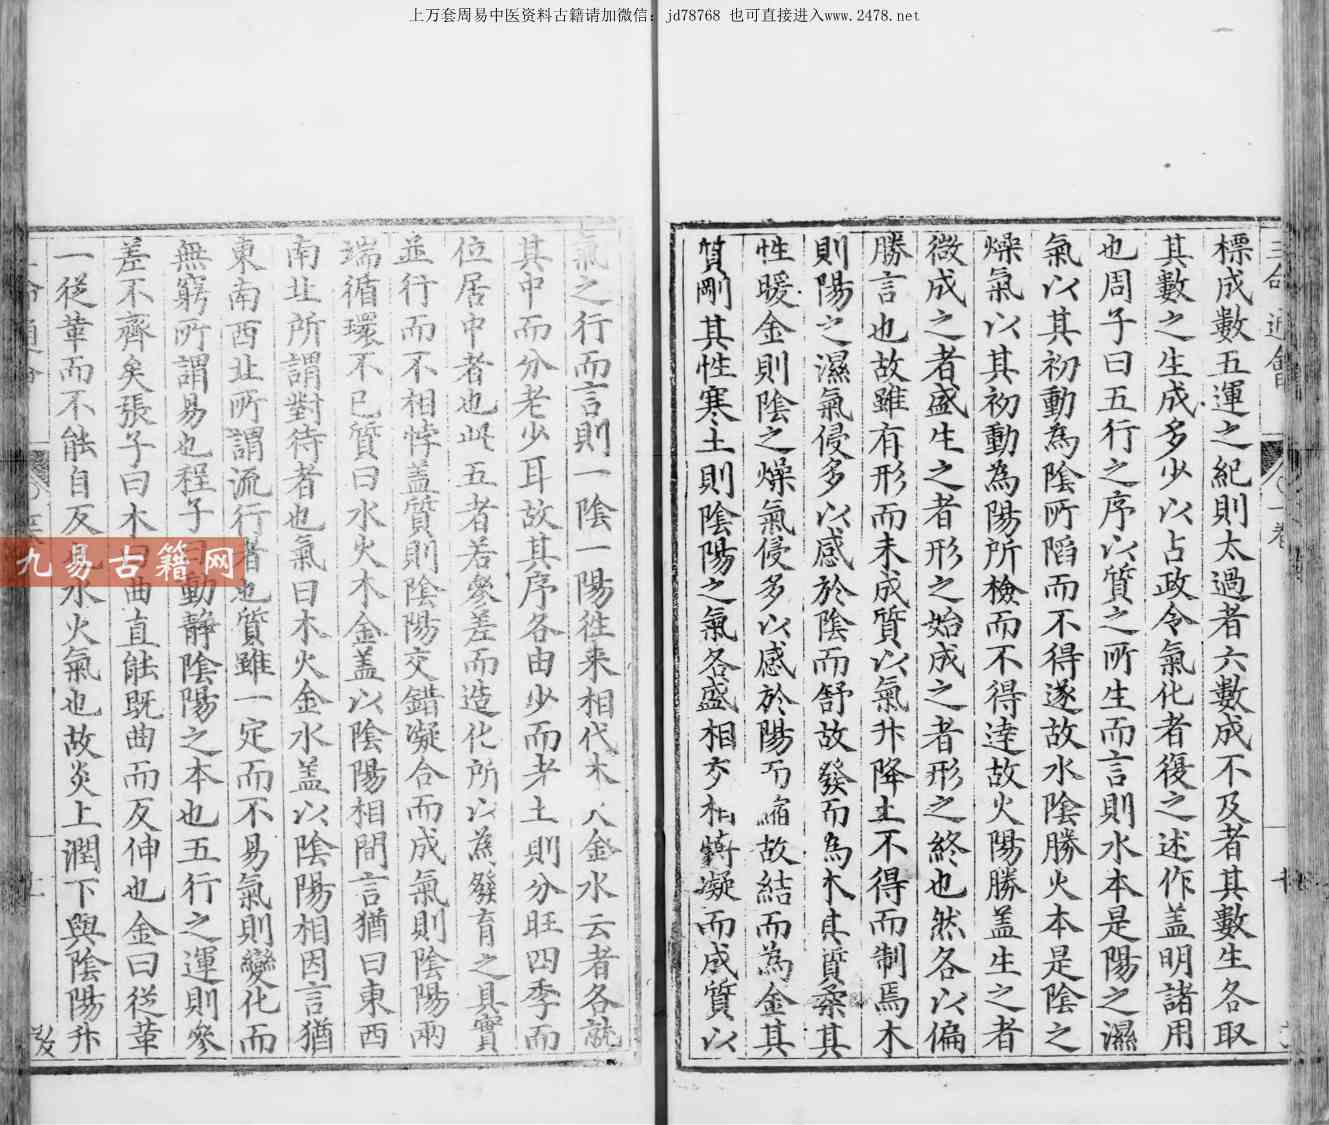 上万套周易中医资料古籍请加微信：jd78768 也可直接进入www.2478.net
三命通會
一卷
標成數五運之紀則太過者六數成不及者其數生各取
其數之生成多少以占政令氣化者復之述作盖明諸用
也周子曰五行之序以質之所生而言則水本是陽之濕
氣以其初動為陰所陷而不得遂故水陰勝火本是陰之
燥氣以其初動為陽所檢而不得達故火陽勝盖生之者
微成之者盛生之者形之始成之者形之終也然各以偏
勝言也故雖有形而未成質以氣升降土不得而制焉木
則陽之濕氣侵多以感於陰而舒故發而為木其質柔其
性暖金則陰之燥氣侵多以感於陽而縮故結而為金其
質剛其性寒土則陰陽之氣各盛相交相轉凝而成質以
氣之行而言則一陰一陽徃来相代木火金水云者各就
其中而分老少耳故其序各由少而老土則分旺四季而
位居中者也此五者若參差而造化所以為發育之具實
並行而不相悖盖質則陰陽交錯凝合而成氣則陰陽兩
端循環不已質曰水火木金盖以陰陽相間言猶曰東西
南北所謂對待者也氣曰木火金水盖以陰陽相因言猶
東南西北所謂流行者也質雖一定而不易氣則變化而
無窮所謂易也程子曰動静陰陽之本也五行之運則參
差不齊矣張子曰木曰曲直能既曲而反伸也金曰從革
一從革而不能自反也水火氣也故炎上潤下與陰陽升
九易古籍网